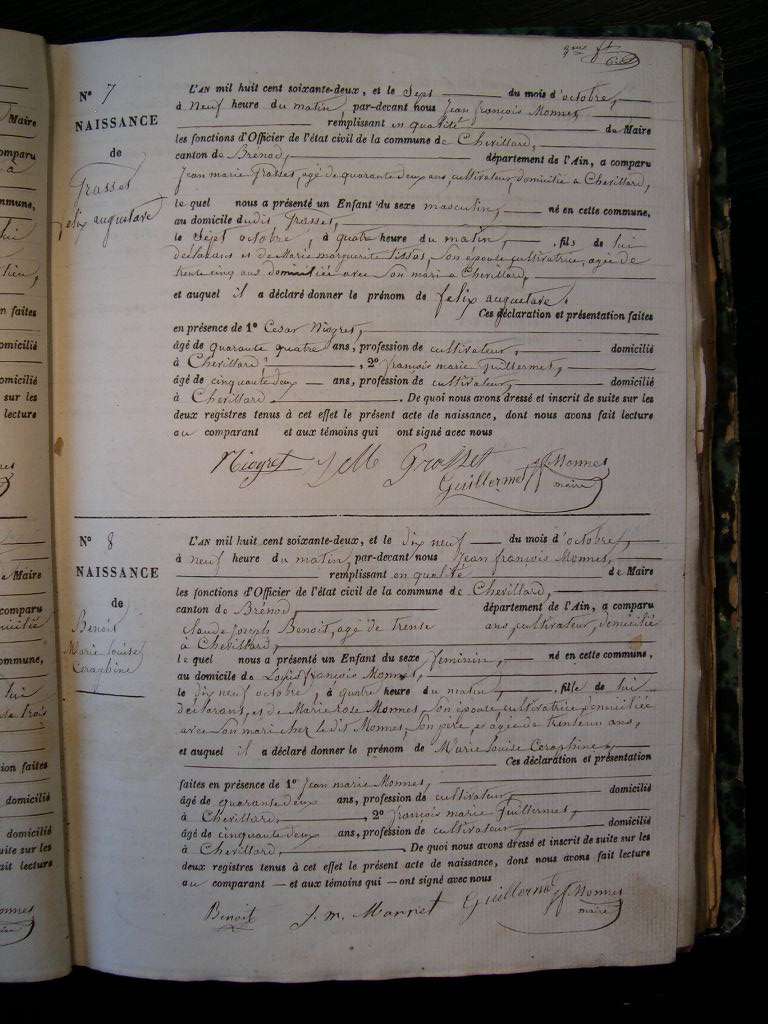 N° 7
NAISSANCE
de
Grasset
felix augustave
L'AN mil huit cent soixante-deux, et le Sept du mois d'octobre,
à Neuf heure du matin, par-devant nous Jean françois Monnet,
remplissant en qualité de Maire
les fonctions d'Officier de l'état civil de la commune de Chevillard,
canton de Brénod, département de l'Ain, a comparu
Jean marie Grasset, agé de quarante deux ans, cultivateur, domicilié a Chevillard,
le quel nous a présenté un Enfant du sexe masculin, né en cette commune,
au domicile dudit Grasset,
le Sept octobre, à quatre heure du matin, fils de lui
déclarans et de Marie marguerite Tissot, son épouse cultivatrice, agée de
trente cinq ans domiciliée avec son mari a Chevillard,
et auquel il a déclaré donner le prénom de felix augustave.
Ces déclaration et présentation faites
en présence de 1° Cesar Niogret,
âgé de quarante quatre ans, profession de cultivateur, domicilié
à Chevillard, 2° françois marie Guillermet,
âgé de cinquante deux ans, profession de cultivateur, domicilié
à Chevillard. De quoi nous avons dressé et inscrit de suite sur les
deux registres tenus à cet effet le présent acte de naissance, dont nous avons fait lecture
au comparant et aux témoins qui ont signé avec nous
Niogret J M Grosset Guillermet Jf Monnet
maire
N° 8
NAISSANCE
de
Benoit
Marie Louise
Ceraphine
L'AN mil huit cent soixante-deux, et le dix neuf du mois d'octobre,
à neuf heure du matin, par-devant nous Jean françois Monnet,
remplissant en qualité de Maire
les fonctions d'Officier de l'état civil de la commune de Chevillard,
canton de Brénod, département de l'Ain, a comparu
claude Joseph Benoit, agé de trente ans, cultivateur, domicilié
à Chevillard,
le quel nous a présenté un Enfant du sexe feminin, né en cette commune,
au domicile de Louis françois Monnet,
le dix neuf octobre, à quatre heure du matin, fille de lui
déclarans, et de Marie rose Monnet, son épouse cultivatrice domiciliée
avec son mari chez le dit Monnet, son père, et agée de trente un ans,
et auquel il a déclaré donner le prénom de Marie Louise Ceraphine,
Ces déclaration et présentation
faites en présence de 1° Jean marie Monnet,
âgé de quarante deux ans, profession de cultivateur, domicilié
à Chevillard, 2° françois marie Guillermet,
âgé de cinquante deux ans, profession de cultivateur, domicilié
à Chevillard, De quoi nous avons dressé et inscrit de suite sur les
deux registres tenus à cet effet le présent acte de naissance, dont nous avons fait lecture
au comparant et aux témoins qui ont signé avec nous
Benoit J. m. Monnet Guillermet Jf Monnet
maire